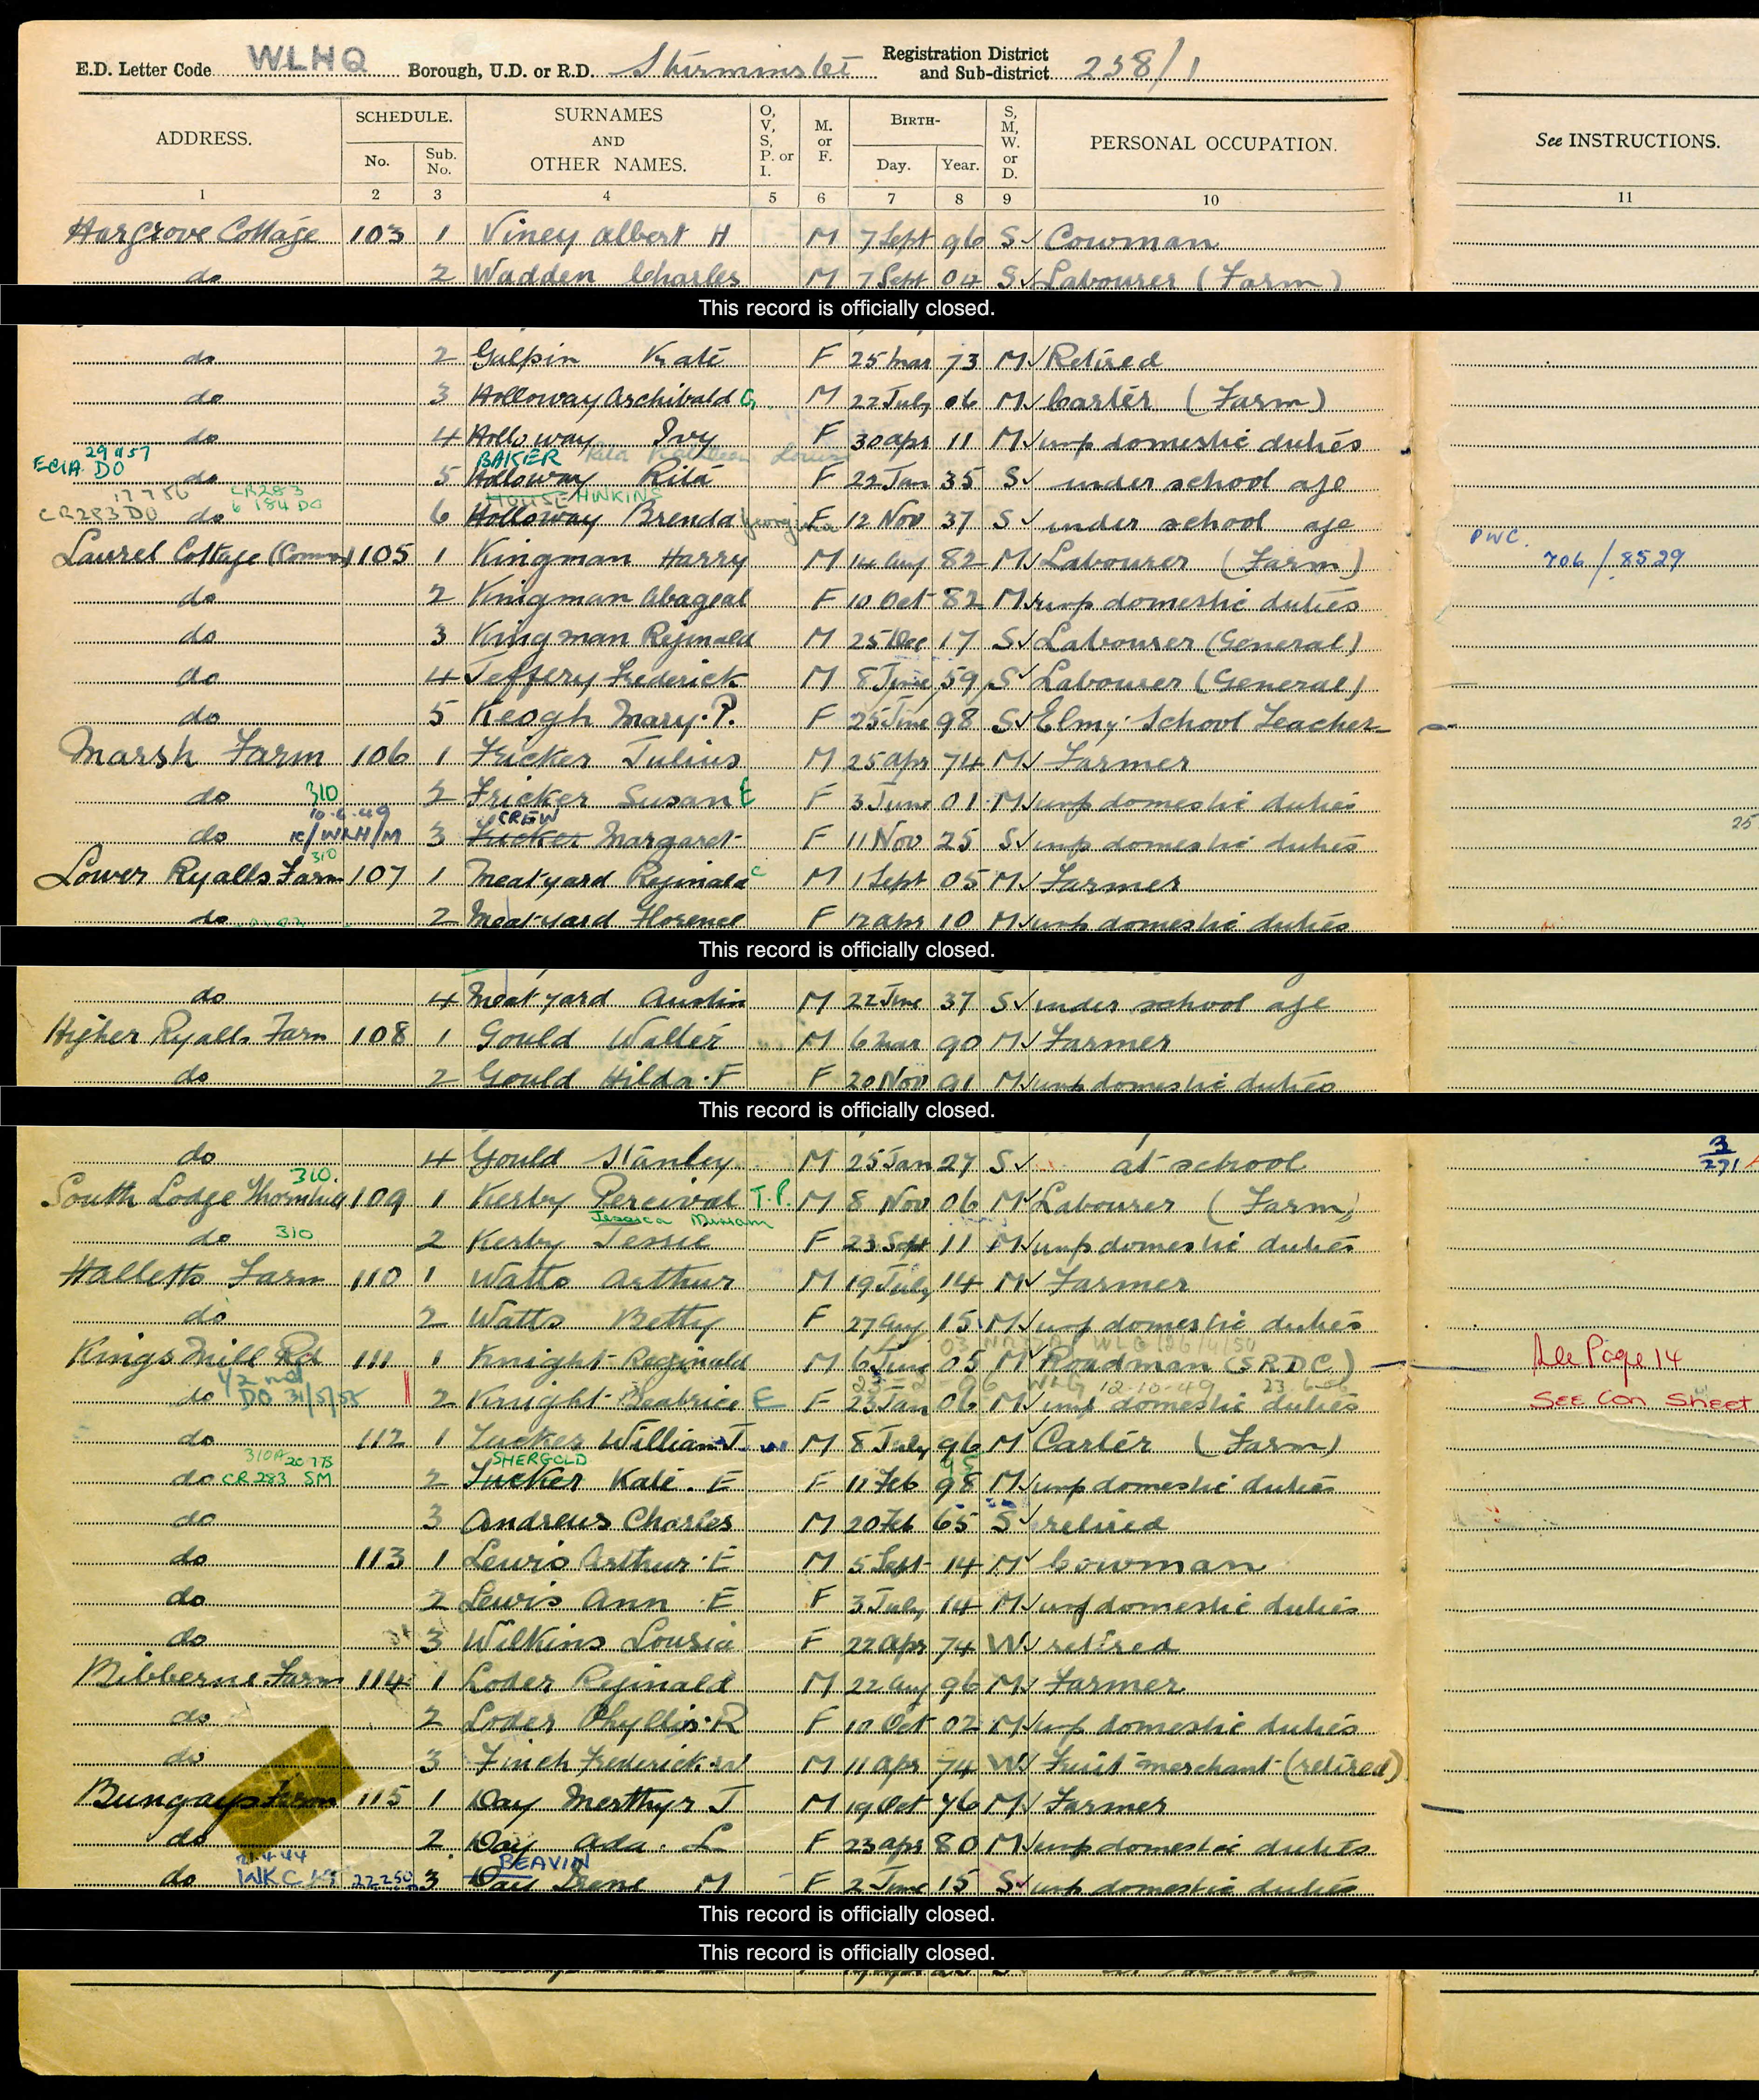 E.D. Letter Code WLHQ Borough, U.D. or R.D. Sturminster Registration District and Sub-district 238/1
ADDRESS. SCHEDULE. No. Sub. No. SURNAMES AND OTHER NAMES. O, V, S, P. or I. M. or F. BIRTH- Day. Year. S, M, W. or D. PERSONAL OCCUPATION. See INSTRUCTIONS.
1 2 3 4 5 6 7 8 9 10 11
Hargrove Cottage 103 1 Viney Albert H M 7 Sept 96 S Cowman
do 2 Wadden Charles M 7 Sept 04 S Labourer (Farm)
This record is officially closed.
do 2 Galpin Kate F 25 Mar 73 M Retired
do 3 Holloway Archibald G. M 22 July 06 M Carter (Farm)
do 4 Holloway Ivy F 30 Apr 11 M unp domestic duties
29 11 57 BAKER Rita Kathleen Louise
ECIA DO do 5 Holloway Rita F 22 Jan 35 S under school age
17 7 56 CR283 HOUSE HINKINS
CR283 DO do 6 1 84 DO 6 Holloway Brenda Georgina F 12 Nov 37 S under school age
Laurel Cottage (Comm) 105 1 Kingman Harry M 14 Aug 82 M Labourer (Farm) PWC. 706/8529
do 2 Kingman Abageal F 10 Oct 82 M unp domestic duties
do 3 Kingman Reginald M 25 Dec 17 S Labourer (General)
do 4 Jeffery Frederick M 8 June 59 S Labourer (General)
do 5 Keogh Mary. P. F 25 June 98 S Elmy. School Teacher
Marsh Farm 106 1 Fricker Julius M 25 Apr 74 M Farmer
do 310 2 Fricker Susan E F 3 June 01 M unp domestic duties
10.6.49 CREW
do K/WRH/M 3 Fricker Margaret F 11 Nov 25 S unp domestic duties 25
310
Lower Ryalls Farm 107 1 Meatyard Reginald C M 1 Sept 05 M Farmer
do 2 Meatyard Florence F 12 Apr 10 M unp domestic duties
This record is officially closed.
do 4 Meatyard Austin M 22 June 37 S under school age
Higher Ryalls Farm 108 1 Gould Walter M 6 Mar 90 M Farmer
do 2 Gould Hilda. F F 20 Nov 91 M unp domestic duties
This record is officially closed.
do 4 Gould Stanley M 25 Jan 27 S at school 3/271
310.
South Lodge Thornhill 109 1 Kerby Percival T.P. M 8 Nov 06 M Labourer (Farm)
Jessica Miriam
do 310 2 Kerby Jessie F 23 Sept 11 M unp domestic duties
Halletts Farm 110 1 Watts Arthur M 19 July 14 M Farmer
do 2 Watts Betty F 27 Aug 15 M unp domestic duties
Kings Mill Rd 111 1 Knight Reginald M 6 June 05 M Roadman (S.R.D.C.) See Page 14
23-2-06 WLG 12.10.49
do DO 31/5/55 2 Knight Beatrice E F 23 Jan 06 M unp domestic duties SEE Con Sheet
do 112 1 Tucker William J. M 8 July 96 M Carter (Farm)
310A 20 7 73 SHERGOLD 98
do CR283 SM 2 Tucker Kate. E F 11 Feb 98 M unp domestic duties
do 3 Andrews Charles M 20 Feb 65 S retired
do 113 1 Lewis Arthur. E M 5 Sept 14 M Cowman
do 2 Lewis Ann. E F 3 July 14 M unp domestic duties
do 3 Wilkins Lousia F 22 Apr 74 W retired
Bibberne Farm 114 1 Loder Reginald M 22 Aug 96 M Farmer
do 2 Loder Phyllis. R F 10 Oct 02 M unp domestic duties
do 3 Finch Frederick. W M 11 Apr 74 W Fruit merchant (retired)
Bungays Farm 115 1 Day Merthyr J M 19 Oct 76 M Farmer
do 2 Day Ada. L F 23 Apr 80 M unp domestic duties
21.4.44 BEAVIN
do WKC 22250 3 Day Irene M F 2 June 15 S unp domestic duties
This record is officially closed.
This record is officially closed.